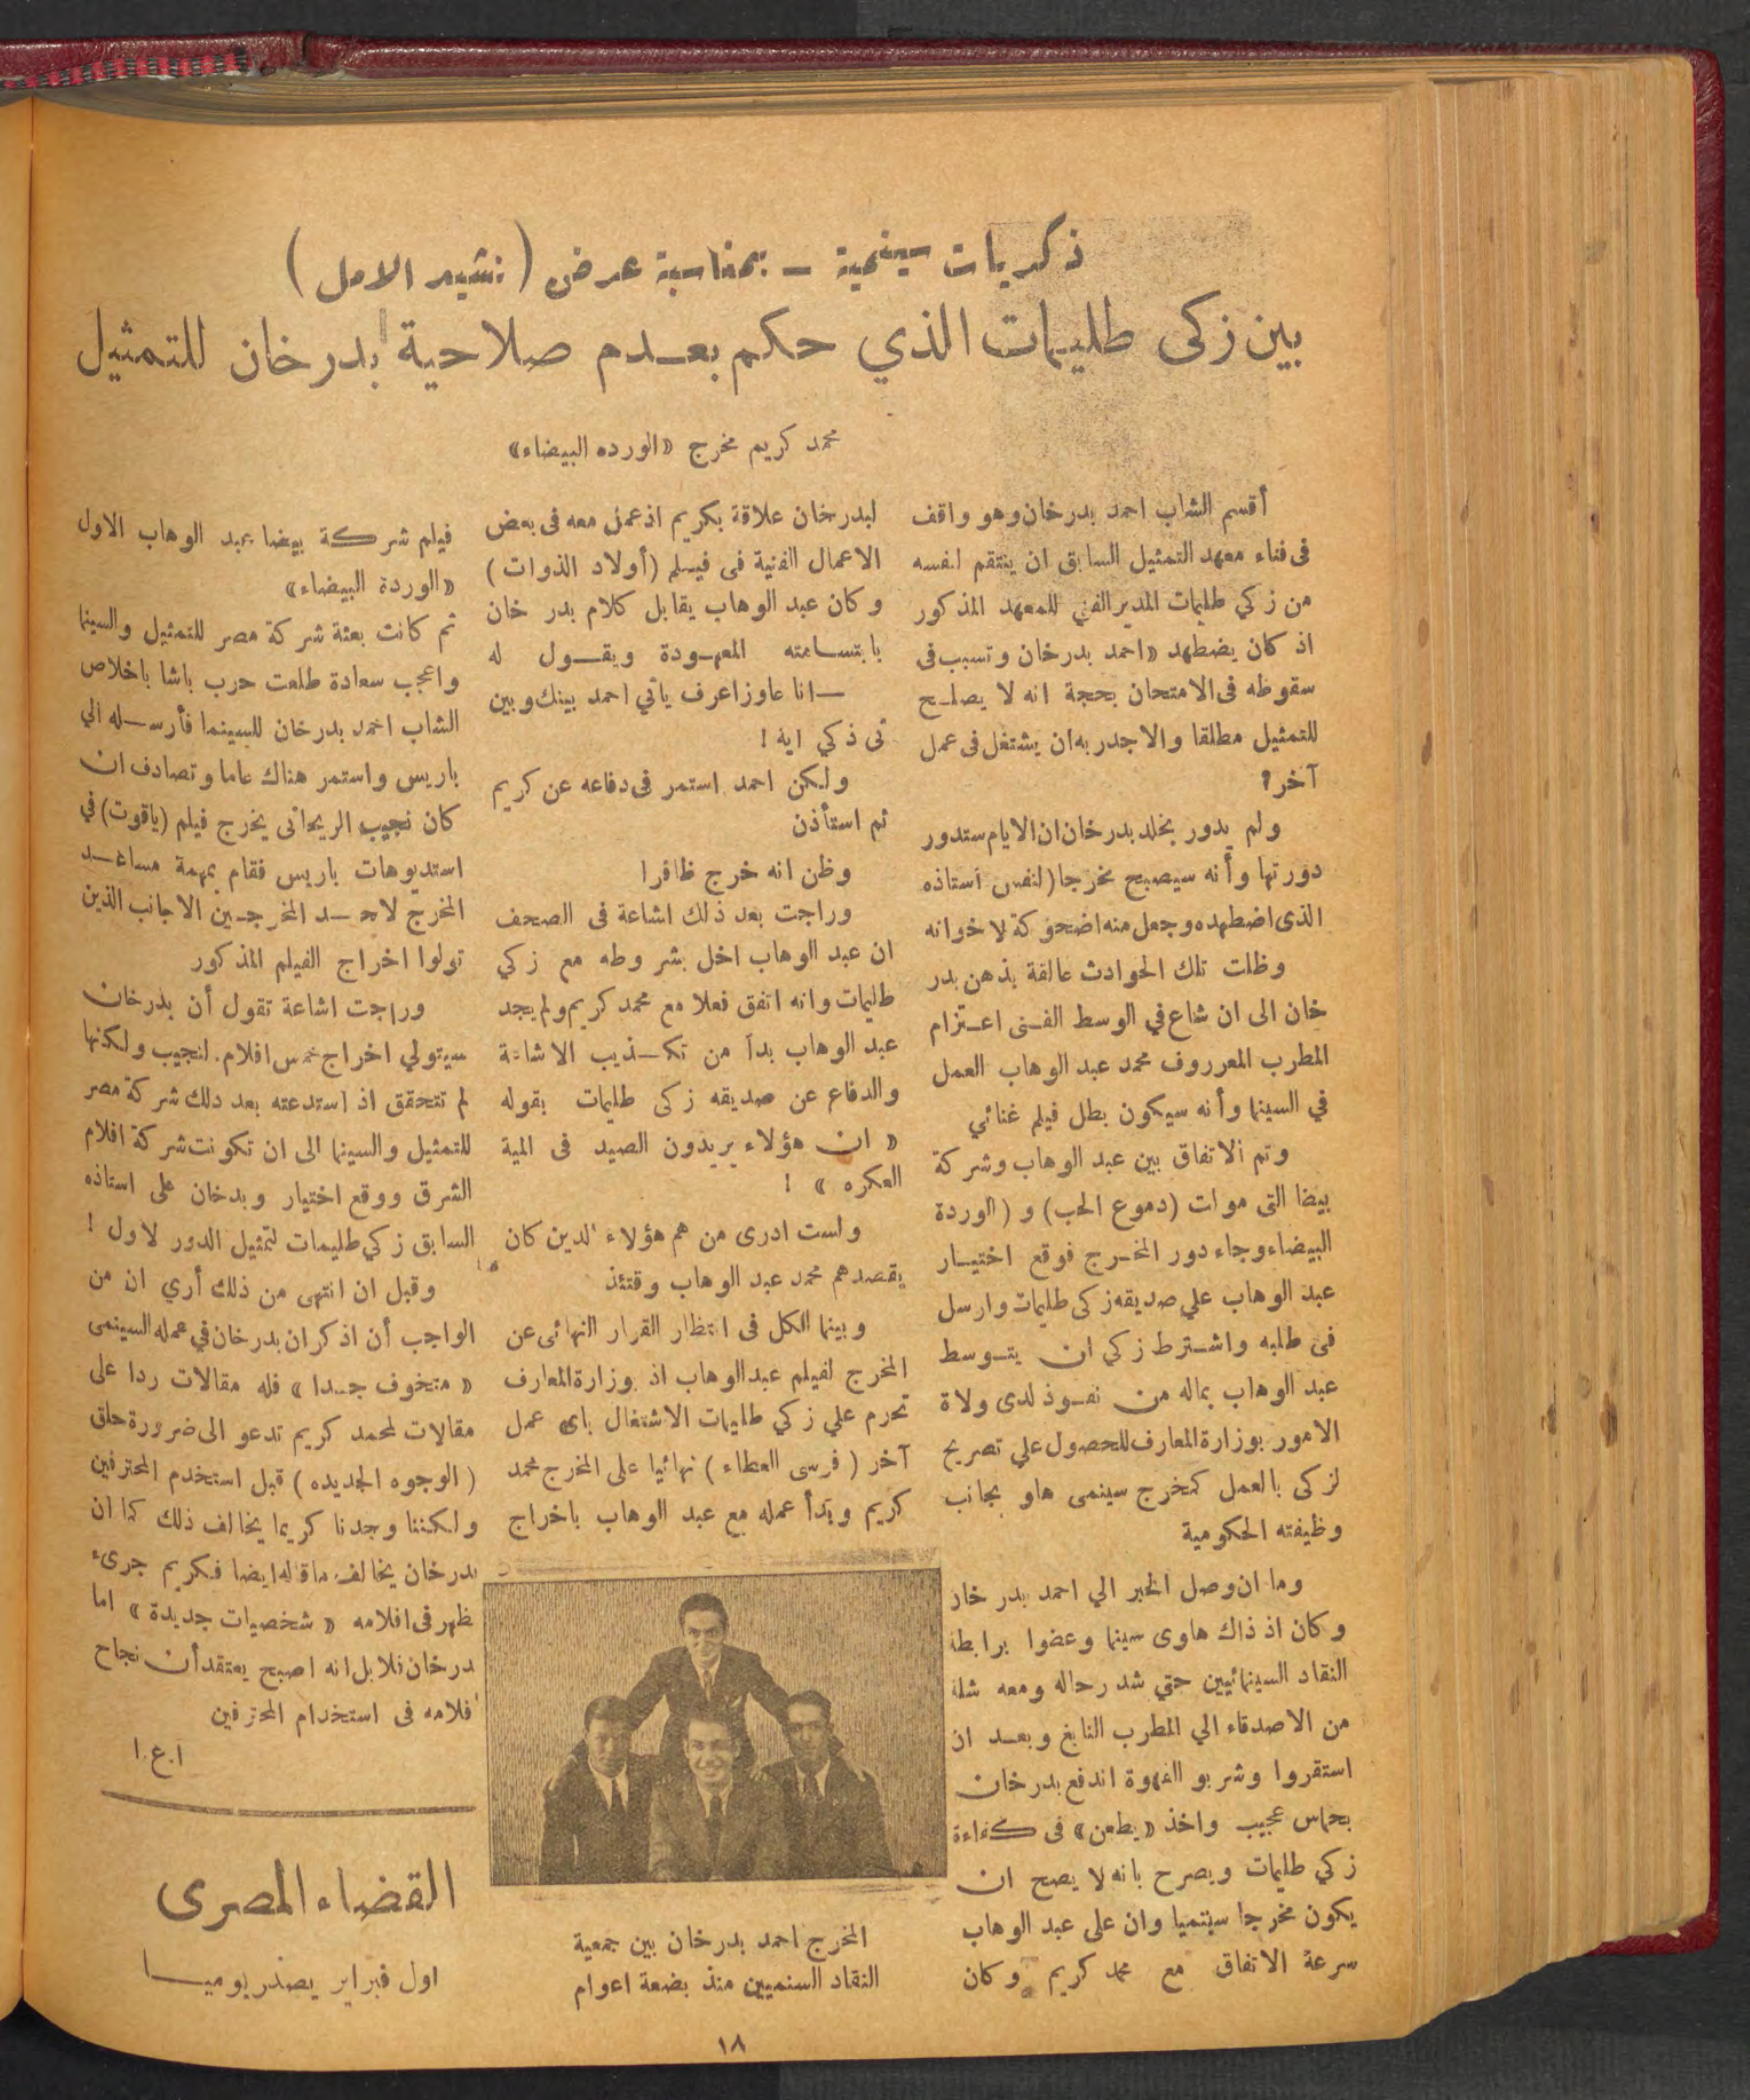 ذكريات سينمية — بمناسبة عرض (نشيد الامل)
بين زكى طليمات الذي حكم بعدم صلاحية بدرخان للتمثيل
محمد كريم مخرج «الورده البيضاء»
أقسم الشاب احمد بدرخان وهو واقف
فى فناء معهد التمثيل السابق ان ينتقم لنفسه
من زكي طليمات المدير الفني للمعهد المذكور
اذ كان يضطهد «احمد بدرخان وتسبب فى
سقوطه فى الامتحان بحجة انه لا يصلح
للتمثيل مطلقا والاجدر به ان يشتغل فى عمل
آخر؟
ولم يدور بخلد بدرخان ان الايام ستدور
دورتها وأنه سيصبح مخرجا (لنفس استاذه
الذى اضطهده وجعل منه اضحوكة لاخوانه
وظلت تلك الحوادث عالقة بذهن بدر
خان الى ان شاع في الوسط الفنى اعتزام
المطرب المعرروف محمد عبد الوهاب العمل
في السينما وأنه سيكون بطل فيلم غنائي
وتم الاتفاق بين عبد الوهاب وشركة
بيضا التى موات (دموع الحب) و (الوردة
البيضاء وجاء دور المخرج فوقع اختيار
عبد الوهاب علي صديقه زكى طليمات وارسل
فى طلبه واشترط زكي ان يتوسط
عبد الوهاب بماله من نفوذ لدى ولاة
الامور بوزارة المعارف للحصول علي تصريح
لزكى بالعمل كمخرج سينمى هاو بجانب
وظيفته الحكومية
وما ان وصل الخبر الي احمد بدر خان
وكان اذ ذاك هاوى سينما وعضوا برابطة
النقاد السينمائيين حتي شد رحاله ومعه شلة
من الاصدقاء الي المطرب النابغ وبعد ان
استقروا وشربو القهوة اندفع بدرخان
بحماس عجيب واخذ «يطعن» فى كفاءة
زكي طليمات ويصرح بانه لا يصح ان
يكون مخرجا سينميا وان على عبد الوهاب
سرعة الاتفاق مع محمد كريم وكان
لبدرخان علاقة بكريم اذ عمل معه فى بعض
الاعمال الفنية فى فيلم (أولاد الذوات)
وكان عبد الوهاب يقابل كلام بدر خان
بابتسامته المعهودة ويقول له
— انا عاوز اعرف ياتي احمد بينك وبين
تى ذكي ايه !
ولكن احمد استمر فى دفاعه عن كريم
ثم استأذن
وظن انه خرج ظافرا
وراجت بعد ذلك اشاعة فى الصحف
ان عبد الوهاب اخل بشروطه مع زكي
طليمات وانه اتفق فعلا مع محمد كريم ولم يجد
عبد الوهاب بدا من تكذيب الاشاعة
والدفاع عن صديقه زكى طليمات بقوله
« ان هؤلاء يريدون الصيد فى المية
العكره » !
ولست ادرى من هم هؤلاء الدين كان
يقصدهم محمد عبد الوهاب وقتئذ
وبينما الكل فى انتظار القرار النهائى عن
المخرج لفيلم عبد الوهاب اذ بوزارة المعارف
تحرم علي زكي طليمات الاشتغال باى عمل
آخر ( فرسى العطاء ) نهائيا على المخرج محمد
كريم وبدأ عمله مع عبد الوهاب باخراج
المخرج احمد بدرخان بين جمعية
النقاد السنميين منذ بضعة اعوام
فيلم شركة بيضا بعبد الوهاب الاول
«الوردة البيضاء»
ثم كانت بعثة شركة مصر للتمثيل والسينما
واعجب سعادة طلعت حرب باشا باخلاص
الشاب احمد بدرخان للسينما فأرسله الي
باريس واستمر هناك عاما وتصادف ان
كان نجيب الريحانى يخرج فيلم (ياقوت) في
استديوهات باريس فقام بمهمة مساعد
المخرج لاحد المخرجين الاجانب الذين
تولوا اخراج الفيلم المذكور
وراجت اشاعة تقول أن بدرخان
سيتولي اخراج خمس افلام لنجيب ولكنها
لم تتحقق اذ استدعته بعد دلك شركة مصر
للتمثيل والسينما الى ان تكونت شركة افلام
الشرق ووقع اختيار وبدخان على استاذه
السابق زكي طليمات لتمثيل الدور لاول !
وقبل ان انتهى من ذلك أري ان من
الواجب أن اذكر ان بدرخان في عمله السينمى
« متخوف جدا » فله مقالات ردا على
مقالات لمحمد كريم تدعو الى ضرورة خلق
( الوجوه الجديده ) قبل استخدم المحترفين
ولكننا وجدنا كريما يخالف ذلك كما ان
بدرخان يخالف ماقاله ايضا فكريم جرىء
ظهر فى افلامه « شخصيات جديدة » اما
بدرخان فلا بل انه اصبح يعتقد أن نجاح
افلامه فى استخدام المحترفين
ا.ع.ا
القضاء المصرى
اول فبراير يصدر يوميا
١٨